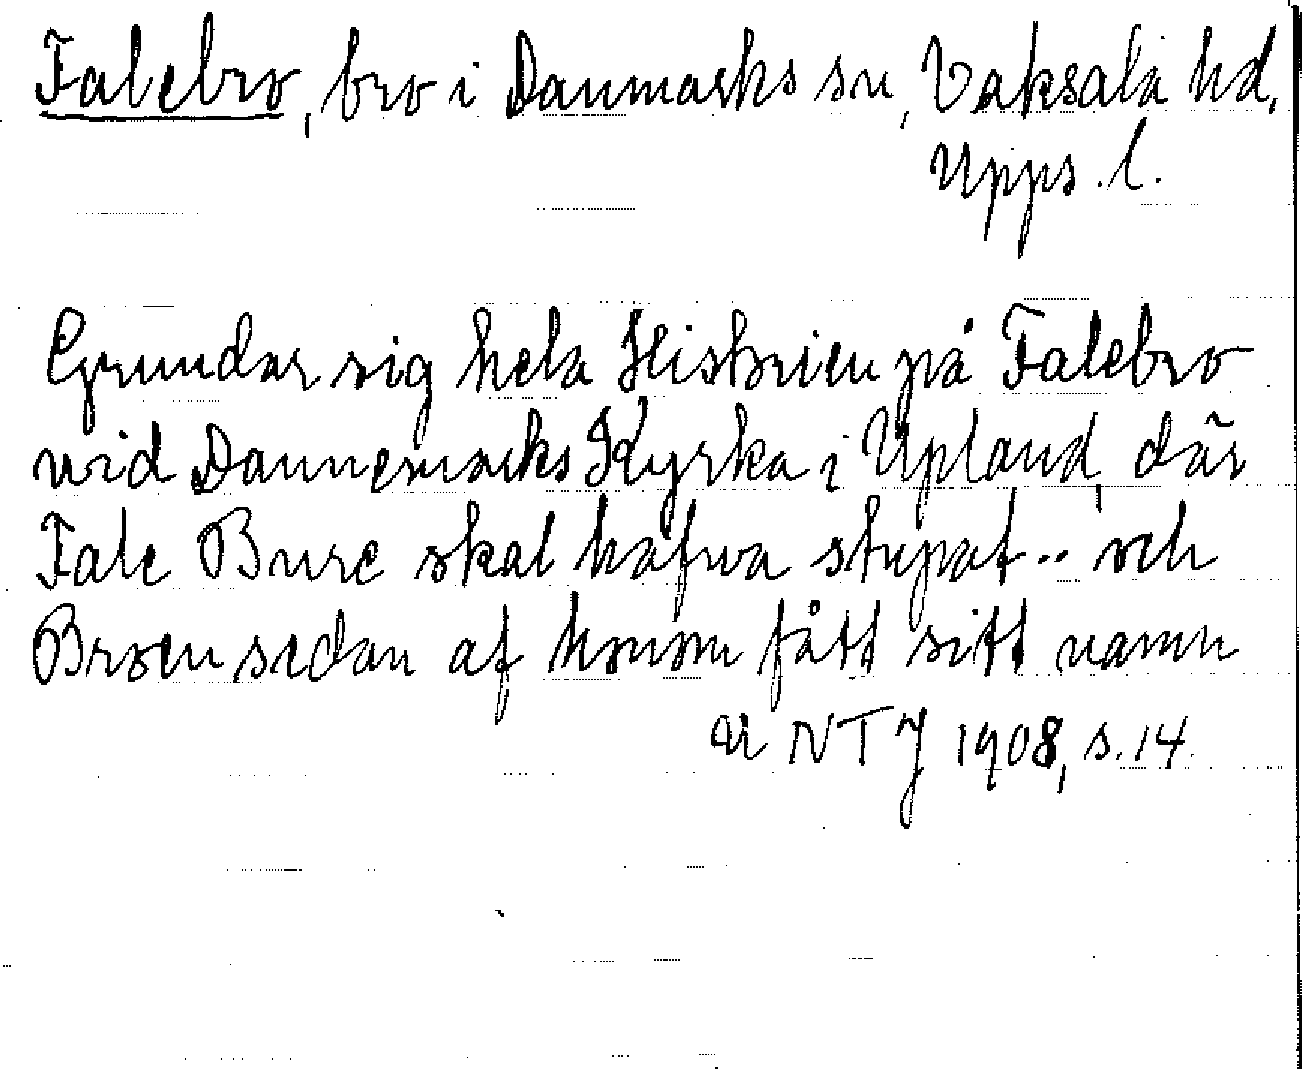 Falebro, bro i Danmarks sn, Vaksala hd,
Upps. l.
Grundar sig hela Historien på Falebro
wid Dannemarks Kyrka i Upland, där
Fale Bure skal hafwa stupat .. och
Broen sedan af honom fått sitt namn
Ur NTJ 1908, s. 14.